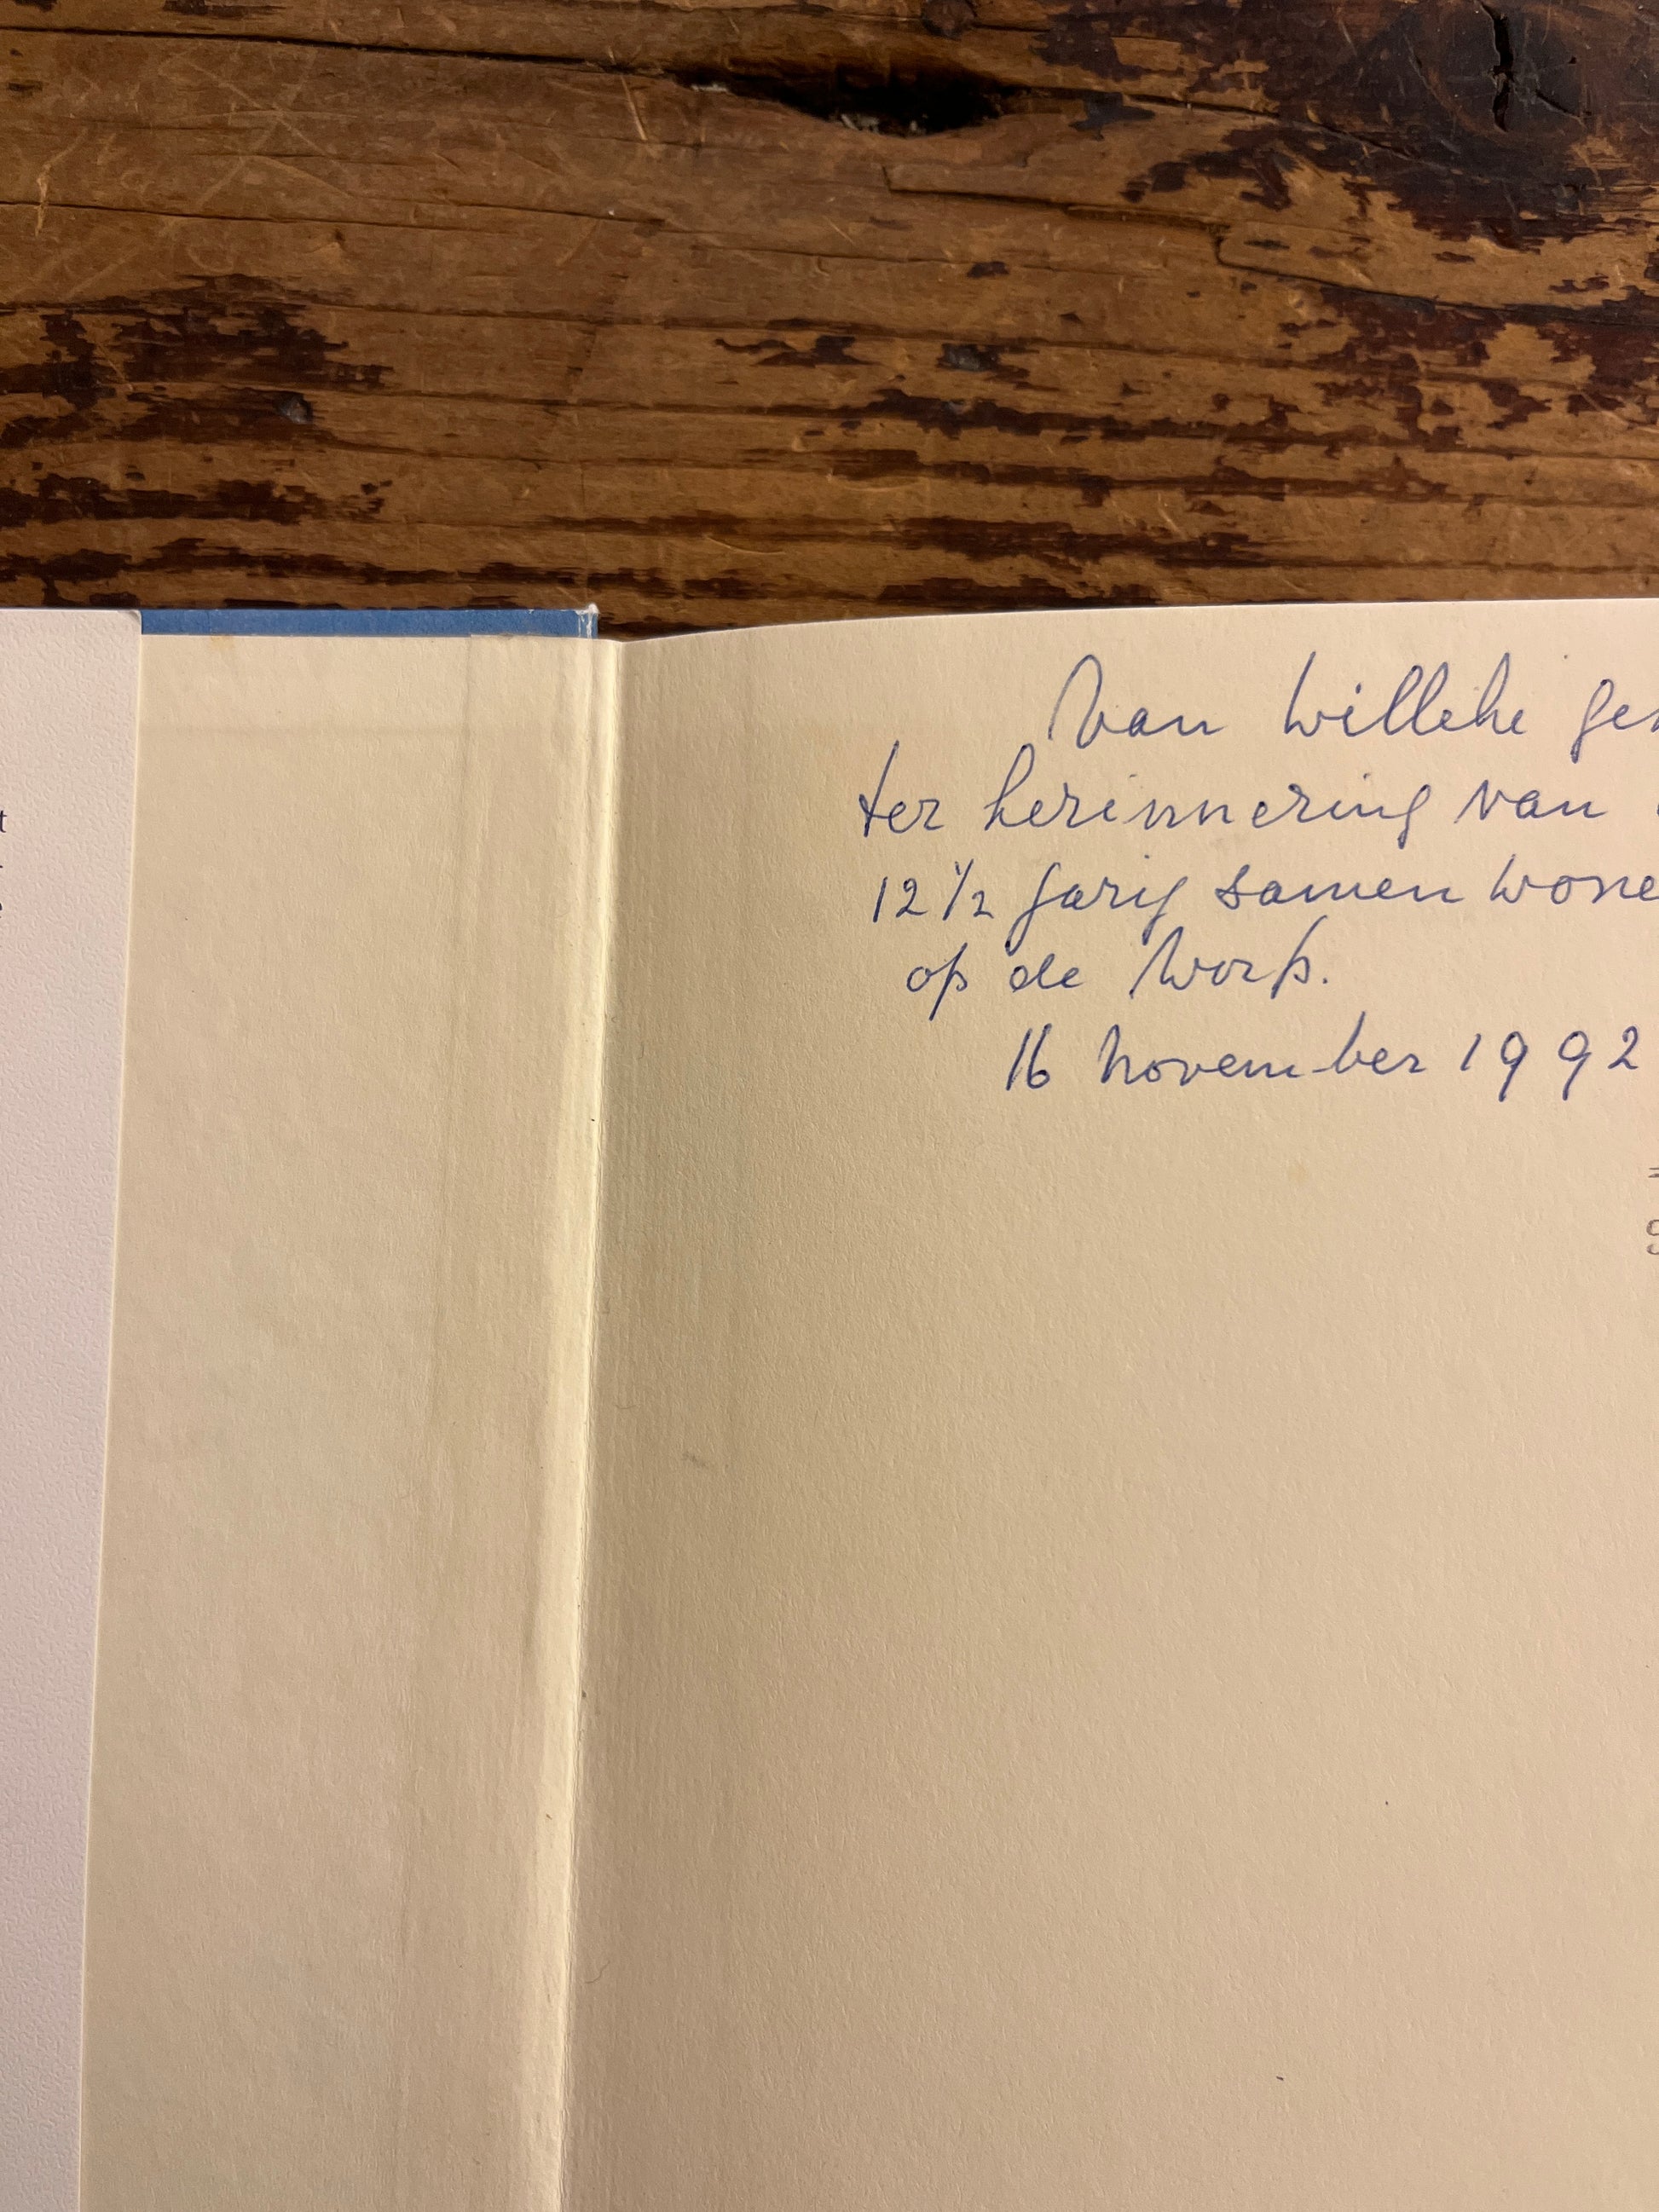 Van Willeke ge
ter herinnering van
12½ jarig samen wone
op de Worp.
16 november 1992
t